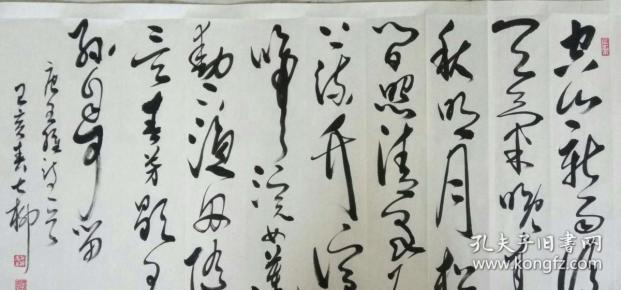 空山新雨後
天氣晚来
秋明月松
间照清泉石
上流竹喧
歸浣女蓮
動下漁舟隨
意春芳歇王
孫自可留
唐王維诗一首
己亥春七柳
孔夫子旧书网
www.kongfz.com